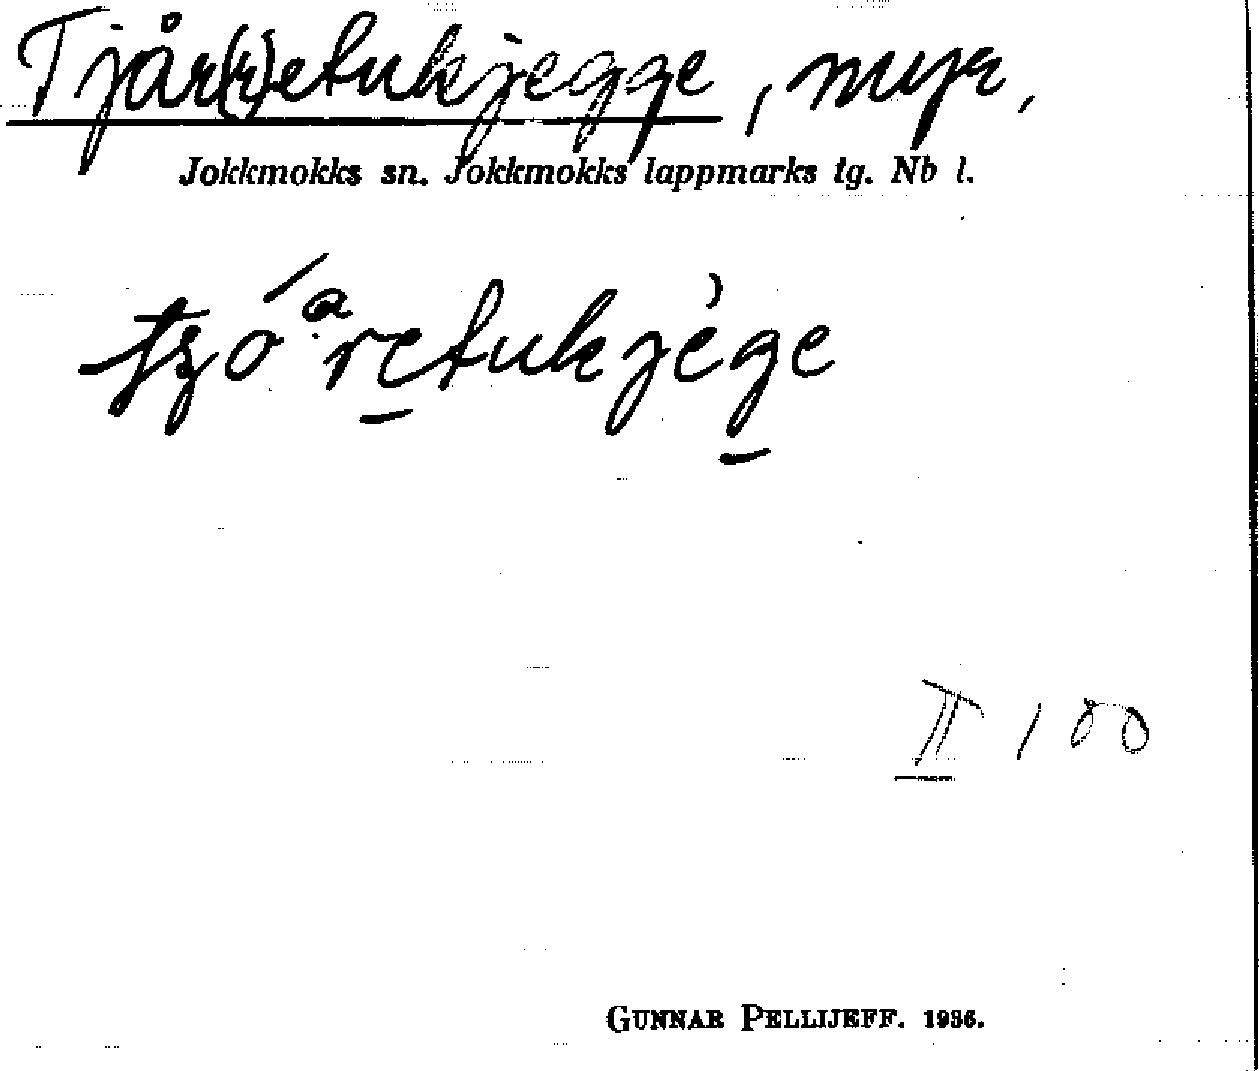 Tjår(r)etukjegge, myr.
Jokkmokks sn. Jokkmokks lappmarks tg. Nb l.
II 100
GUNNAR PELLIJEFF. 1936.